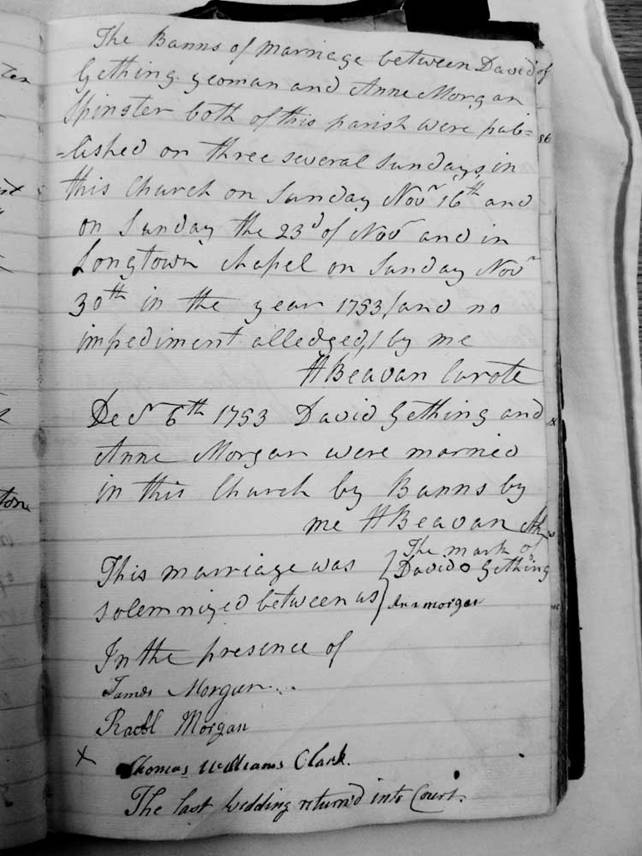 The Banns of Marriage between David
Gething yeoman and Anne Morgan
Spinster both of this parish were pub=
-lished on three several Sundays in
this Church on Sunday Novr 16th and
on Sunday the 23d of Novr and in
Longtown Chapel on Sunday Novr
30th in the year 1753/and no
impediment alledged/by me
HBeavan Curate
Decr 6th 1753 David Gething and
Anne Morgan were married
in this Church by Banns by
me HBeavan
This marriage was
solemnized between us
The mark of
David o Gething
Ann morgan
In the presence of
James Morgan
Rachl Morgan
X Thomas Williams Clark.
The last Wedding return'd into Court.